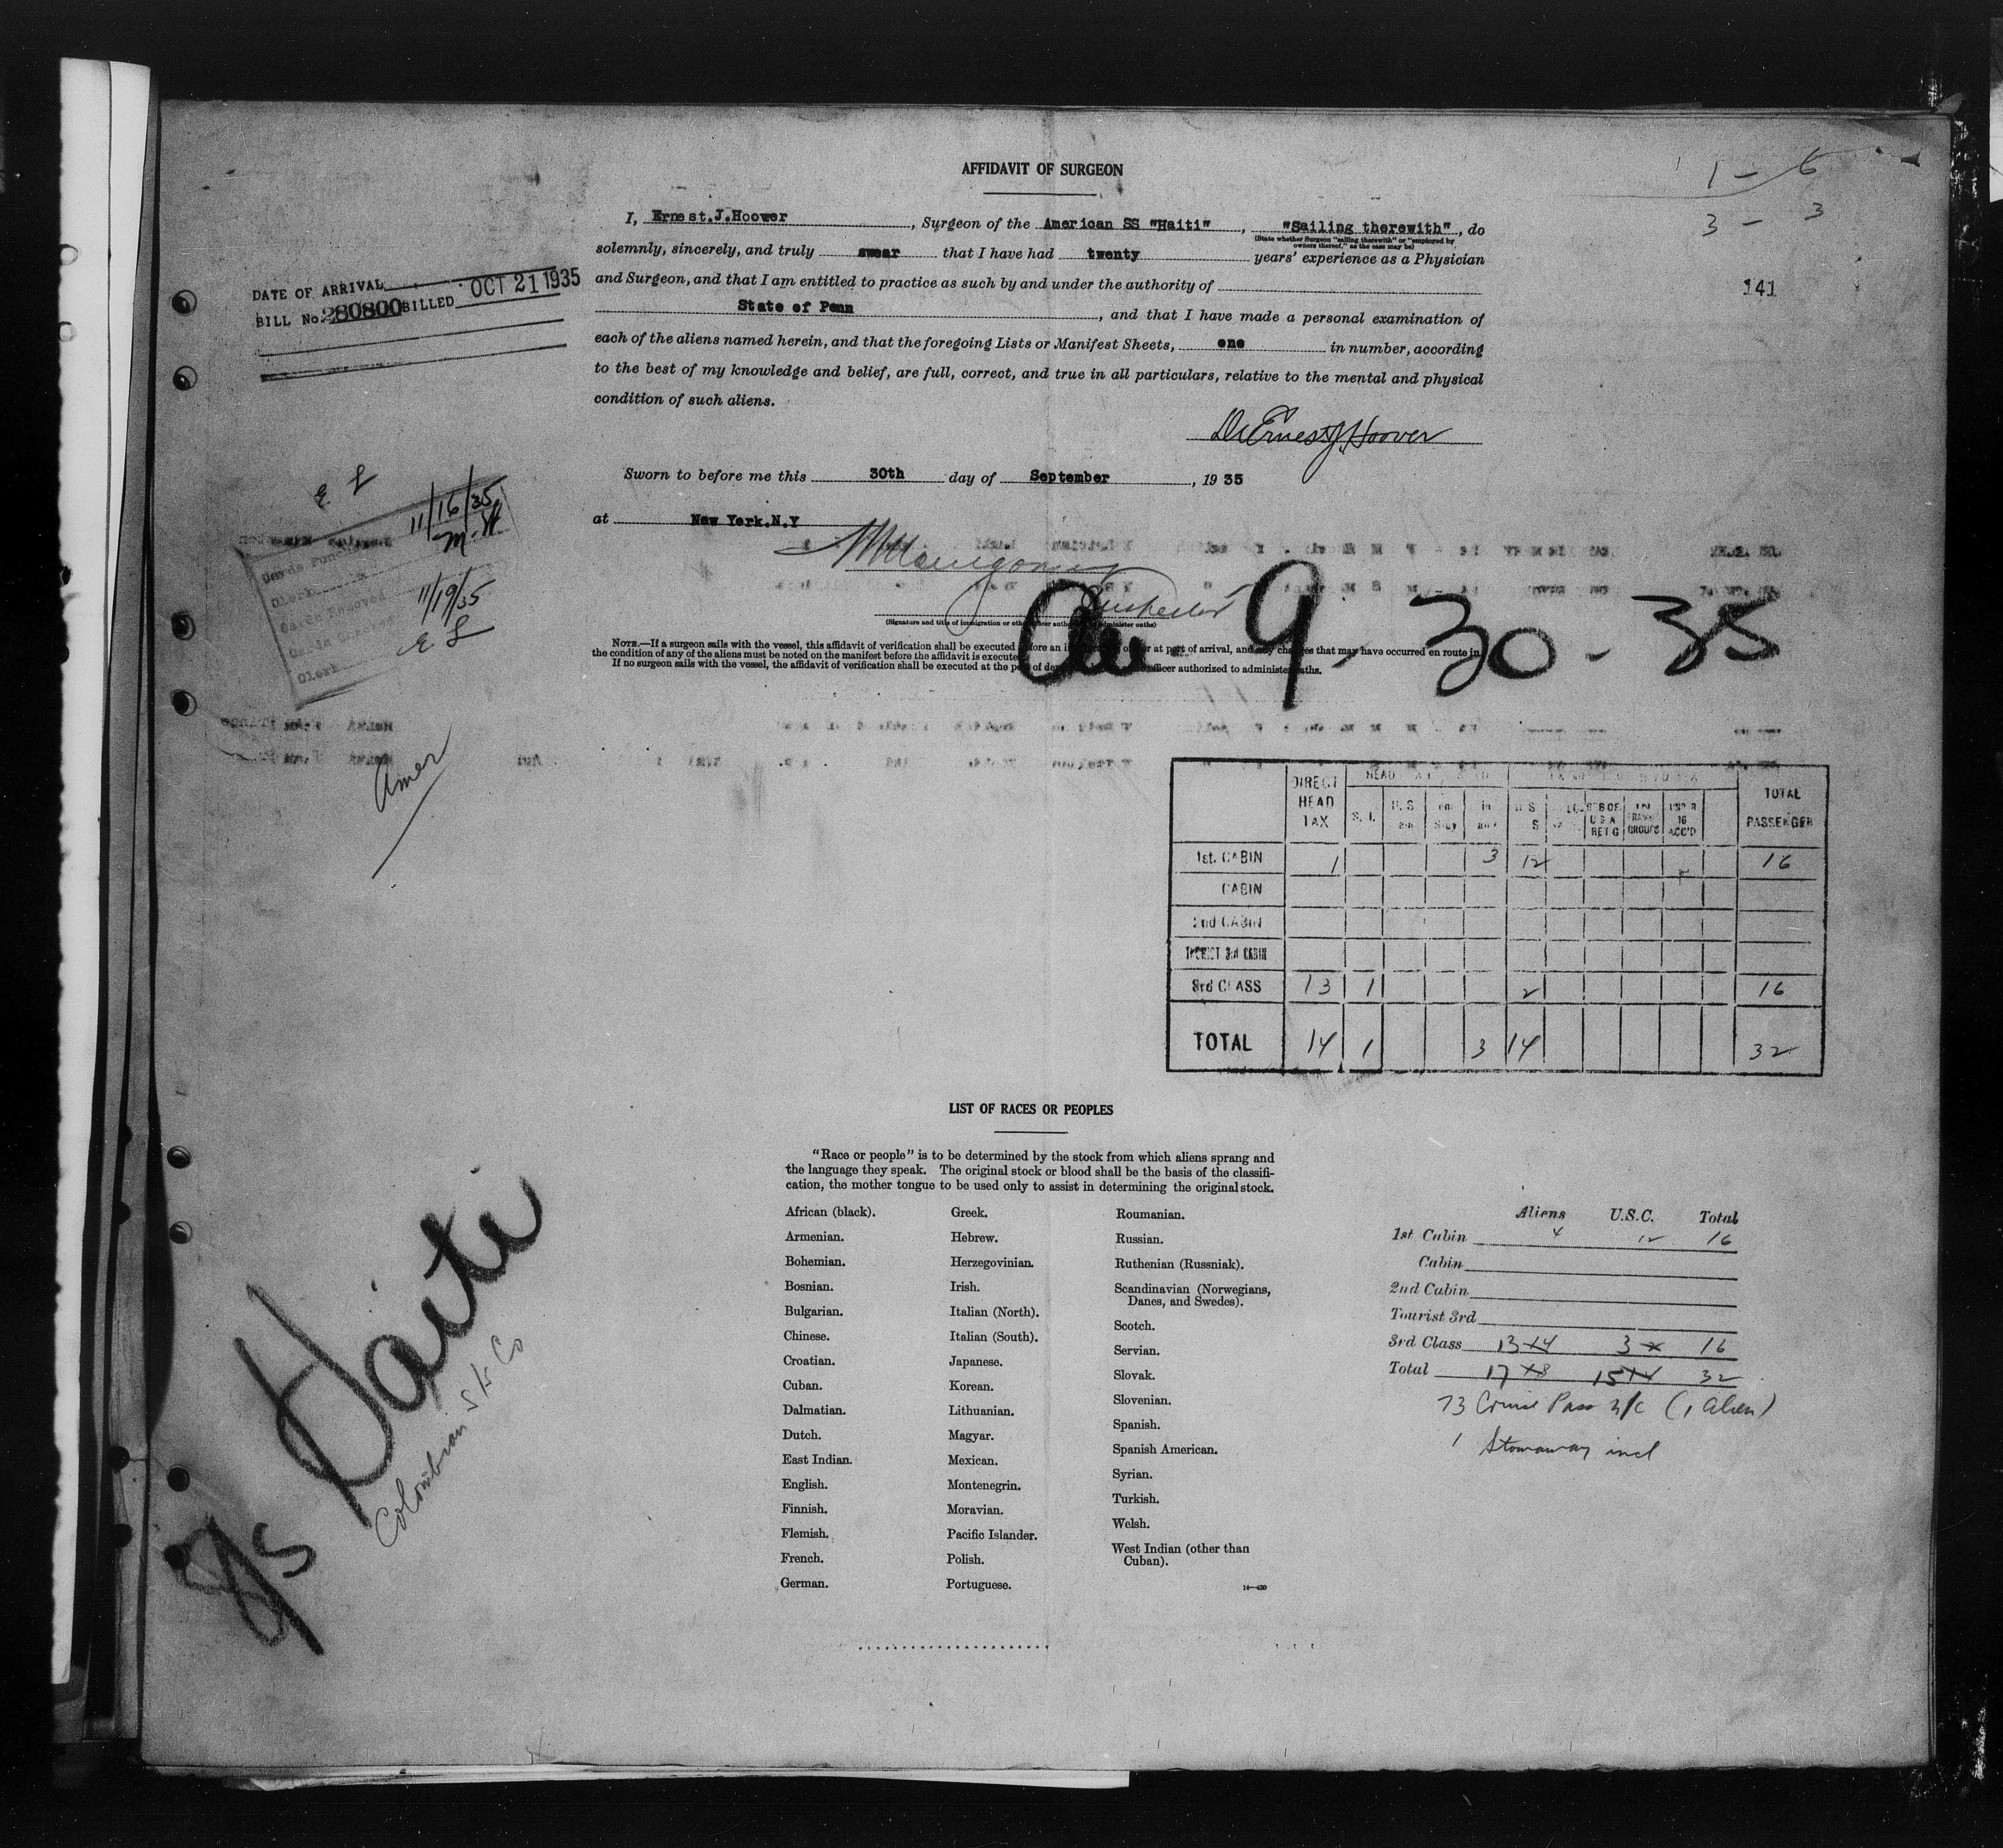 AFFIDAVIT OF SURGEON
1 - 6
3 - 3
141
I, Ernest.J.Hoover, Surgeon of the American SS "Haiti", "Sailing therewith", do
(State whether Surgeon "sailing therewith" or "employed by
owners thereof," as the case may be)
solemnly, sincerely, and truly swear that I have had twenty years' experience as a Physician
and Surgeon, and that I am entitled to practice as such by and under the authority of
State of Penn, and that I have made a personal examination of
each of the aliens named herein, and that the foregoing Lists or Manifest Sheets, one in number, according
to the best of my knowledge and belief, are full, correct, and true in all particulars, relative to the mental and physical
condition of such aliens.
Dr Ernest J. Hoover
DATE OF ARRIVAL
BILL No. 280800 BILLED OCT 21 1935
Sworn to before me this 30th day of September, 1935
at New York.N.Y
Inspector
(Signature and title of immigration or other officer authorized to administer oaths)
E L
11/16/35
M.H.
Clerk
Removed
11/19/35
E L
Clerk
Amer
9-30-35
NOTE.—If a surgeon sails with the vessel, this affidavit of verification shall be executed before an officer at port of arrival, and any changes that may have occurred en route in
the condition of any of the aliens must be noted on the manifest before the affidavit is executed
If no surgeon sails with the vessel, the affidavit of verification shall be executed at the port of officer authorized to administer oaths.
DIRECT HEAD TAX HEAD S. I. U.S TOTAL PASSENGER
1st. CABIN 1 3 12 16
CABIN
2nd CABIN
TOURIST 3rd CABIN
3rd CLASS 13 1 2 16
TOTAL 14 1 3 14 32
LIST OF RACES OR PEOPLES
"Race or people" is to be determined by the stock from which aliens sprang and
the language they speak. The original stock or blood shall be the basis of the classifi-
cation, the mother tongue to be used only to assist in determining the original stock.
African (black).
Armenian.
Bohemian.
Bosnian.
Bulgarian.
Chinese.
Croatian.
Cuban.
Dalmatian.
Dutch.
East Indian.
English.
Finnish.
Flemish.
French.
German.
Greek.
Hebrew.
Herzegovinian.
Irish.
Italian (North).
Italian (South).
Japanese.
Korean.
Lithuanian.
Magyar.
Mexican.
Montenegrin.
Moravian.
Pacific Islander.
Polish.
Portuguese.
Roumanian.
Russian.
Ruthenian (Russniak).
Scandinavian (Norwegians,
Danes, and Swedes).
Scotch.
Servian.
Slovak.
Slovenian.
Spanish.
Spanish American.
Syrian.
Turkish.
Welsh.
West Indian (other than
Cuban).
14—430
Aliens U.S.C. Total
1st Cabin 4 12 16
Cabin
2nd Cabin
Tourist 3rd
3rd Class 13 14 3 2 16
Total 17 18 15 14 32
73 Cruise Pass n/c (1 alien)
1 Stowaway incl
Haiti
Colombian S/S Co